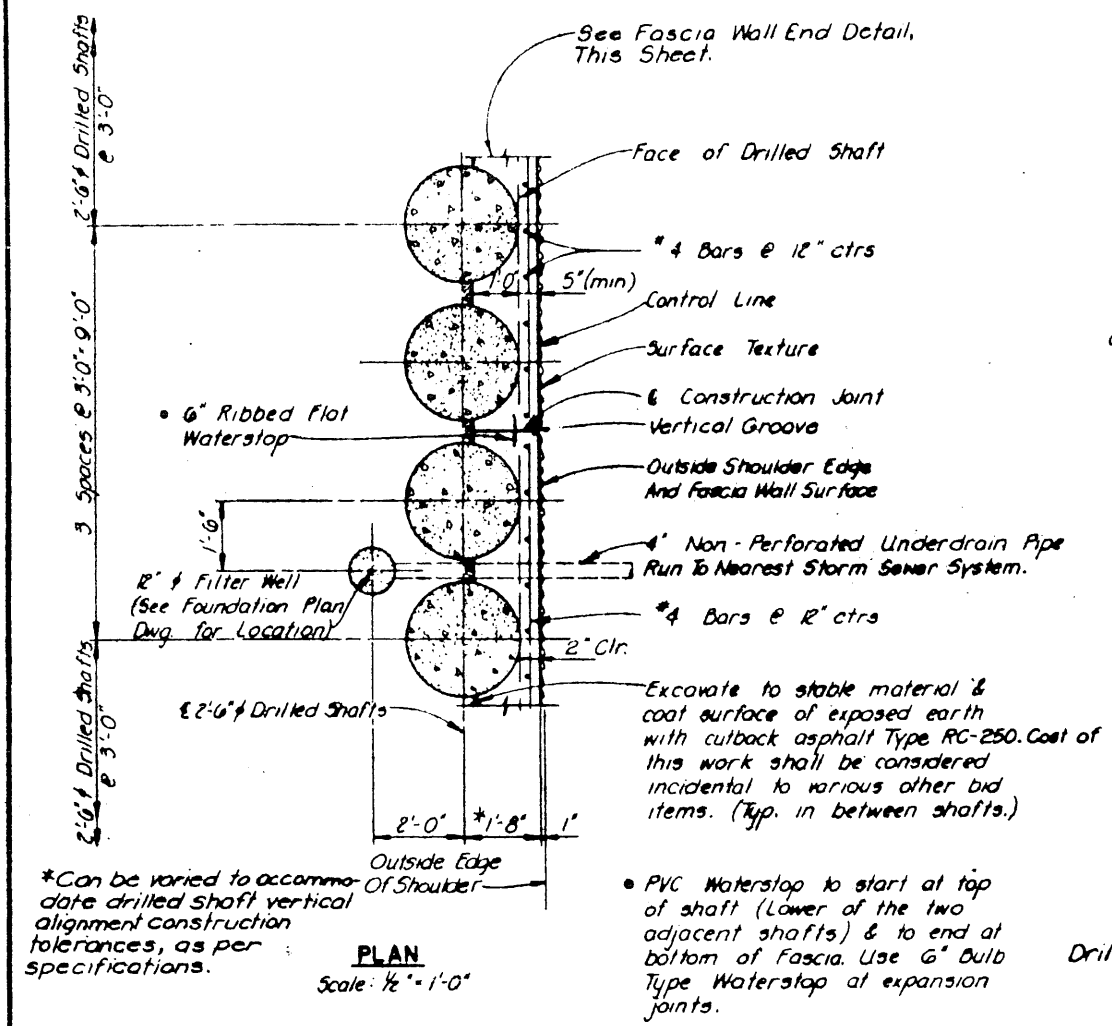 See Fascia Wall End Detail,
This Sheet.
2'-6" ϕ Drilled Shafts
@ 3'-0"
Face of Drilled Shaft
#4 Bars @ 12" ctrs
1'-0"
5"(min)
Control Line
Surface Texture
3 Spaces @ 3'-0" = 9'-0"
• 6" Ribbed Flat
Waterstop
℄ Construction Joint
Vertical Groove
Outside Shoulder Edge
And Fascia Wall Surface
1'-6"
4" Non-Perforated Underdrain Pipe
Run To Nearest Storm Sewer System.
12" ϕ Filter Well
(See Foundation Plan
Dwg. for Location)
#4 Bars @ 12" ctrs
2" Clr.
2'-6" ϕ Drilled Shafts
@ 3'-0"
℄ 2'-6" ϕ Drilled Shafts
Excavate to stable material &
coat surface of exposed earth
with cutback asphalt Type RC-250. Cost of
this work shall be considered
incidental to various other bid
items. (Typ. in between shafts.)
2'-0"
*1'-8"
1"
Outside Edge
Of Shoulder
*Can be varied to accommo-
date drilled shaft vertical
alignment construction
tolerances, as per
specifications.
PLAN
Scale: 1/2" = 1'-0"
• PVC Waterstop to start at top
of shaft (Lower of the two
adjacent shafts) & to end at
bottom of Fascia. Use 6" Bulb
Type Waterstop at expansion
joints.
Dril